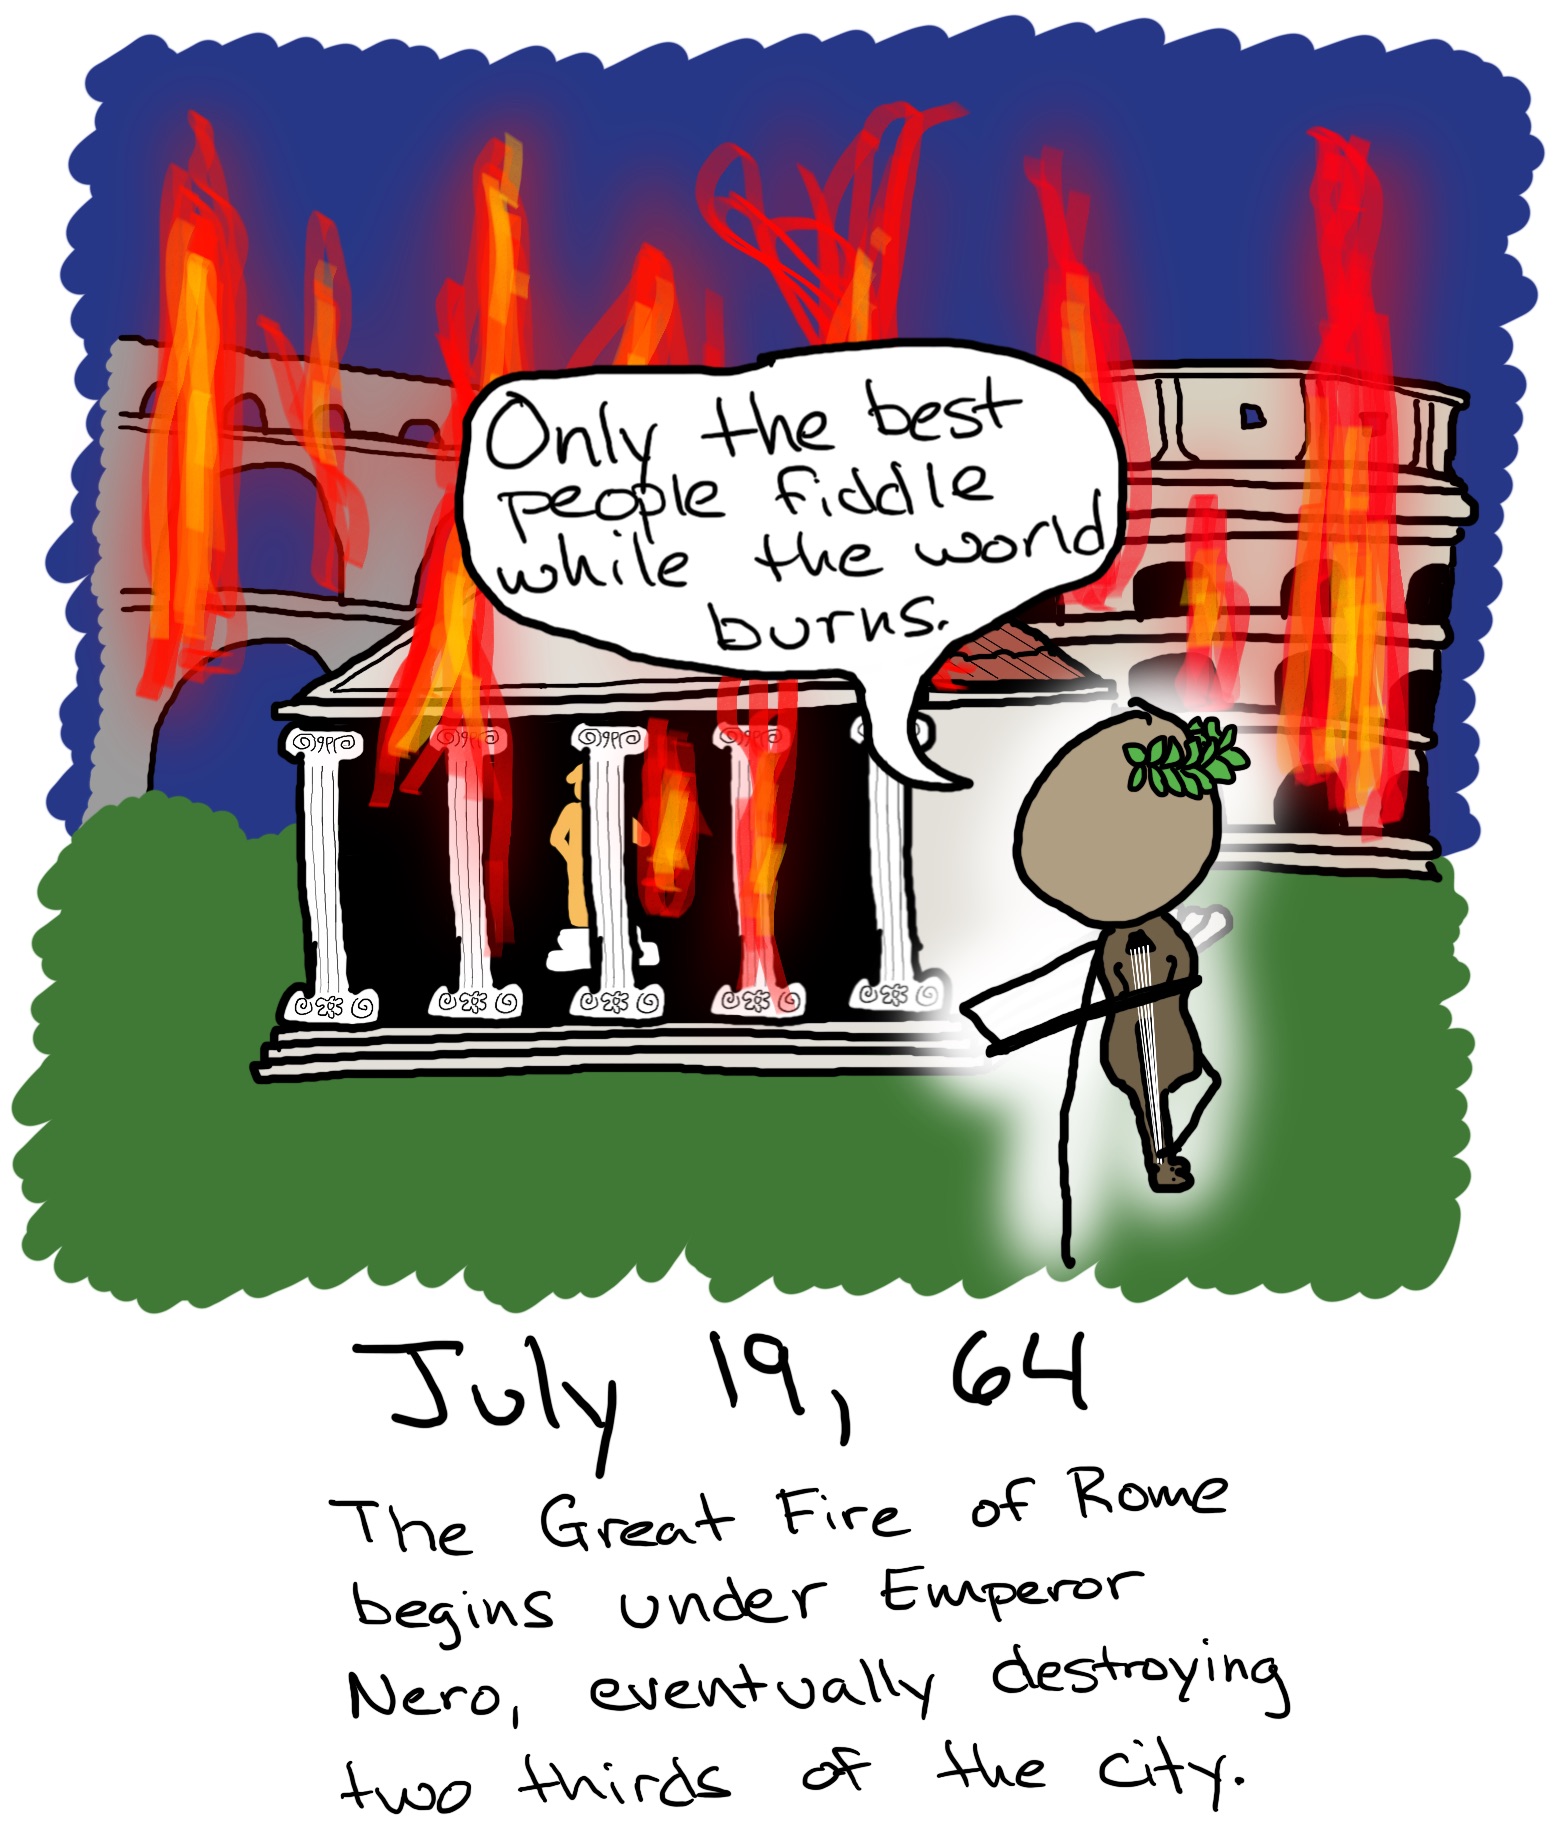 Only the best
people fiddle
while the world
burns.
July 19, 64
The Great Fire of Rome
begins under Emperor
Nero, eventually destroying
two thirds of the city.